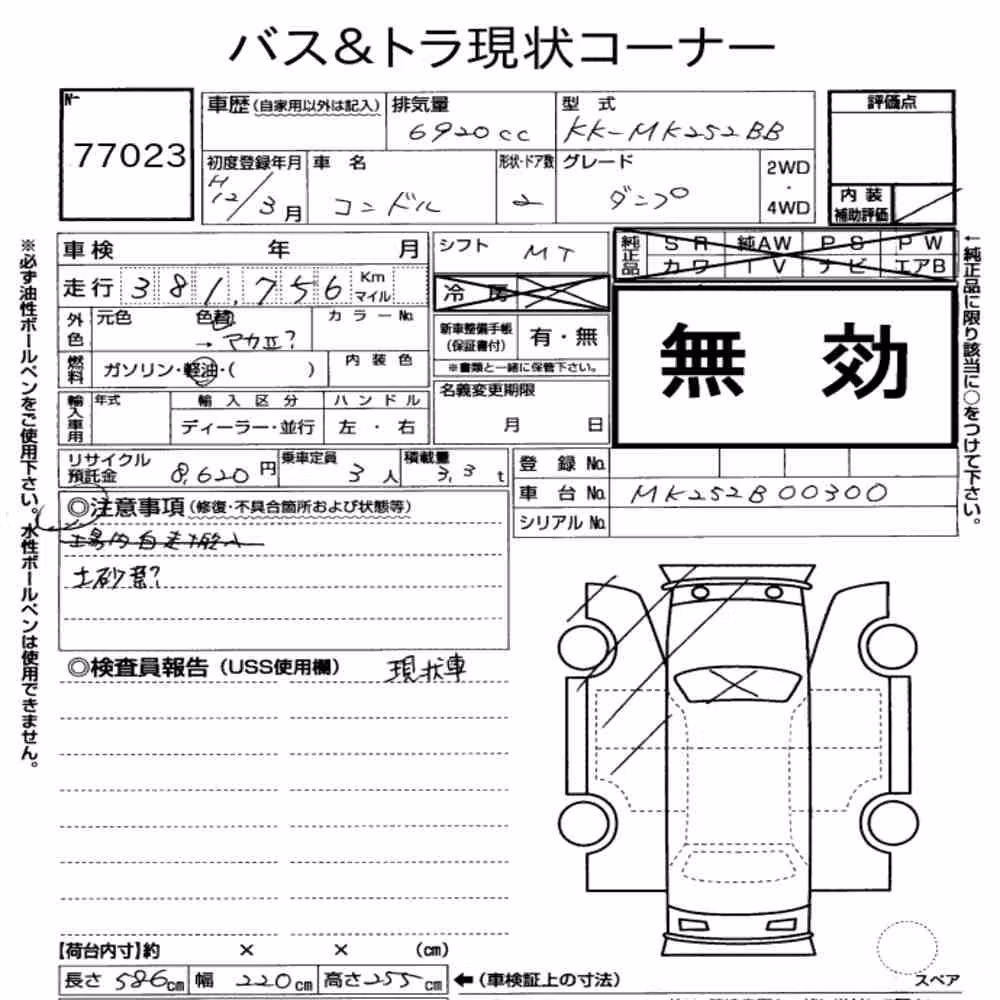 バス&トラ現状コーナー
No
77023
車歴(自家用以外は記入)
排気量
6920cc
型式
KK-MK252BB
評価点
初度登録年月
H12/3月
車名
コンドル
形状・ドア数
2
グレード
ダンプ
2WD
・
4WD
内装
補助評価
車検 年 月
シフト
MT
純正品
SR 純AW PS PW
カワ TV ナビ エアB
走行 381,756 Km
マイル
冷房
外色
元色
色替
→アカⅡ?
カラーNo.
新車整備手帳
(保証書付)
有・無
※書類と一緒に保管下さい。
無効
燃料
ガソリン・軽油・( )
内装色
名義変更期限
月 日
輸入車用
年式
輸入区分
ハンドル
ディーラー・並行
左・右
リサイクル
預託金
8,620円
乗車定員
3人
積載量
3,3t
登録No.
車台No.
MK252B00300
シリアルNo.
◎注意事項(修復・不具合箇所および状態等)
土砂禁?
◎検査員報告(USS使用欄)
現状車
【荷台内寸】約 × × (cm)
長さ586cm
幅220cm
高さ255cm
←(車検証上の寸法)
スペア
※必ず油性ボールペンをご使用下さい。水性ボールペンは使用できません。
←純正品に限り該当に○をつけて下さい。